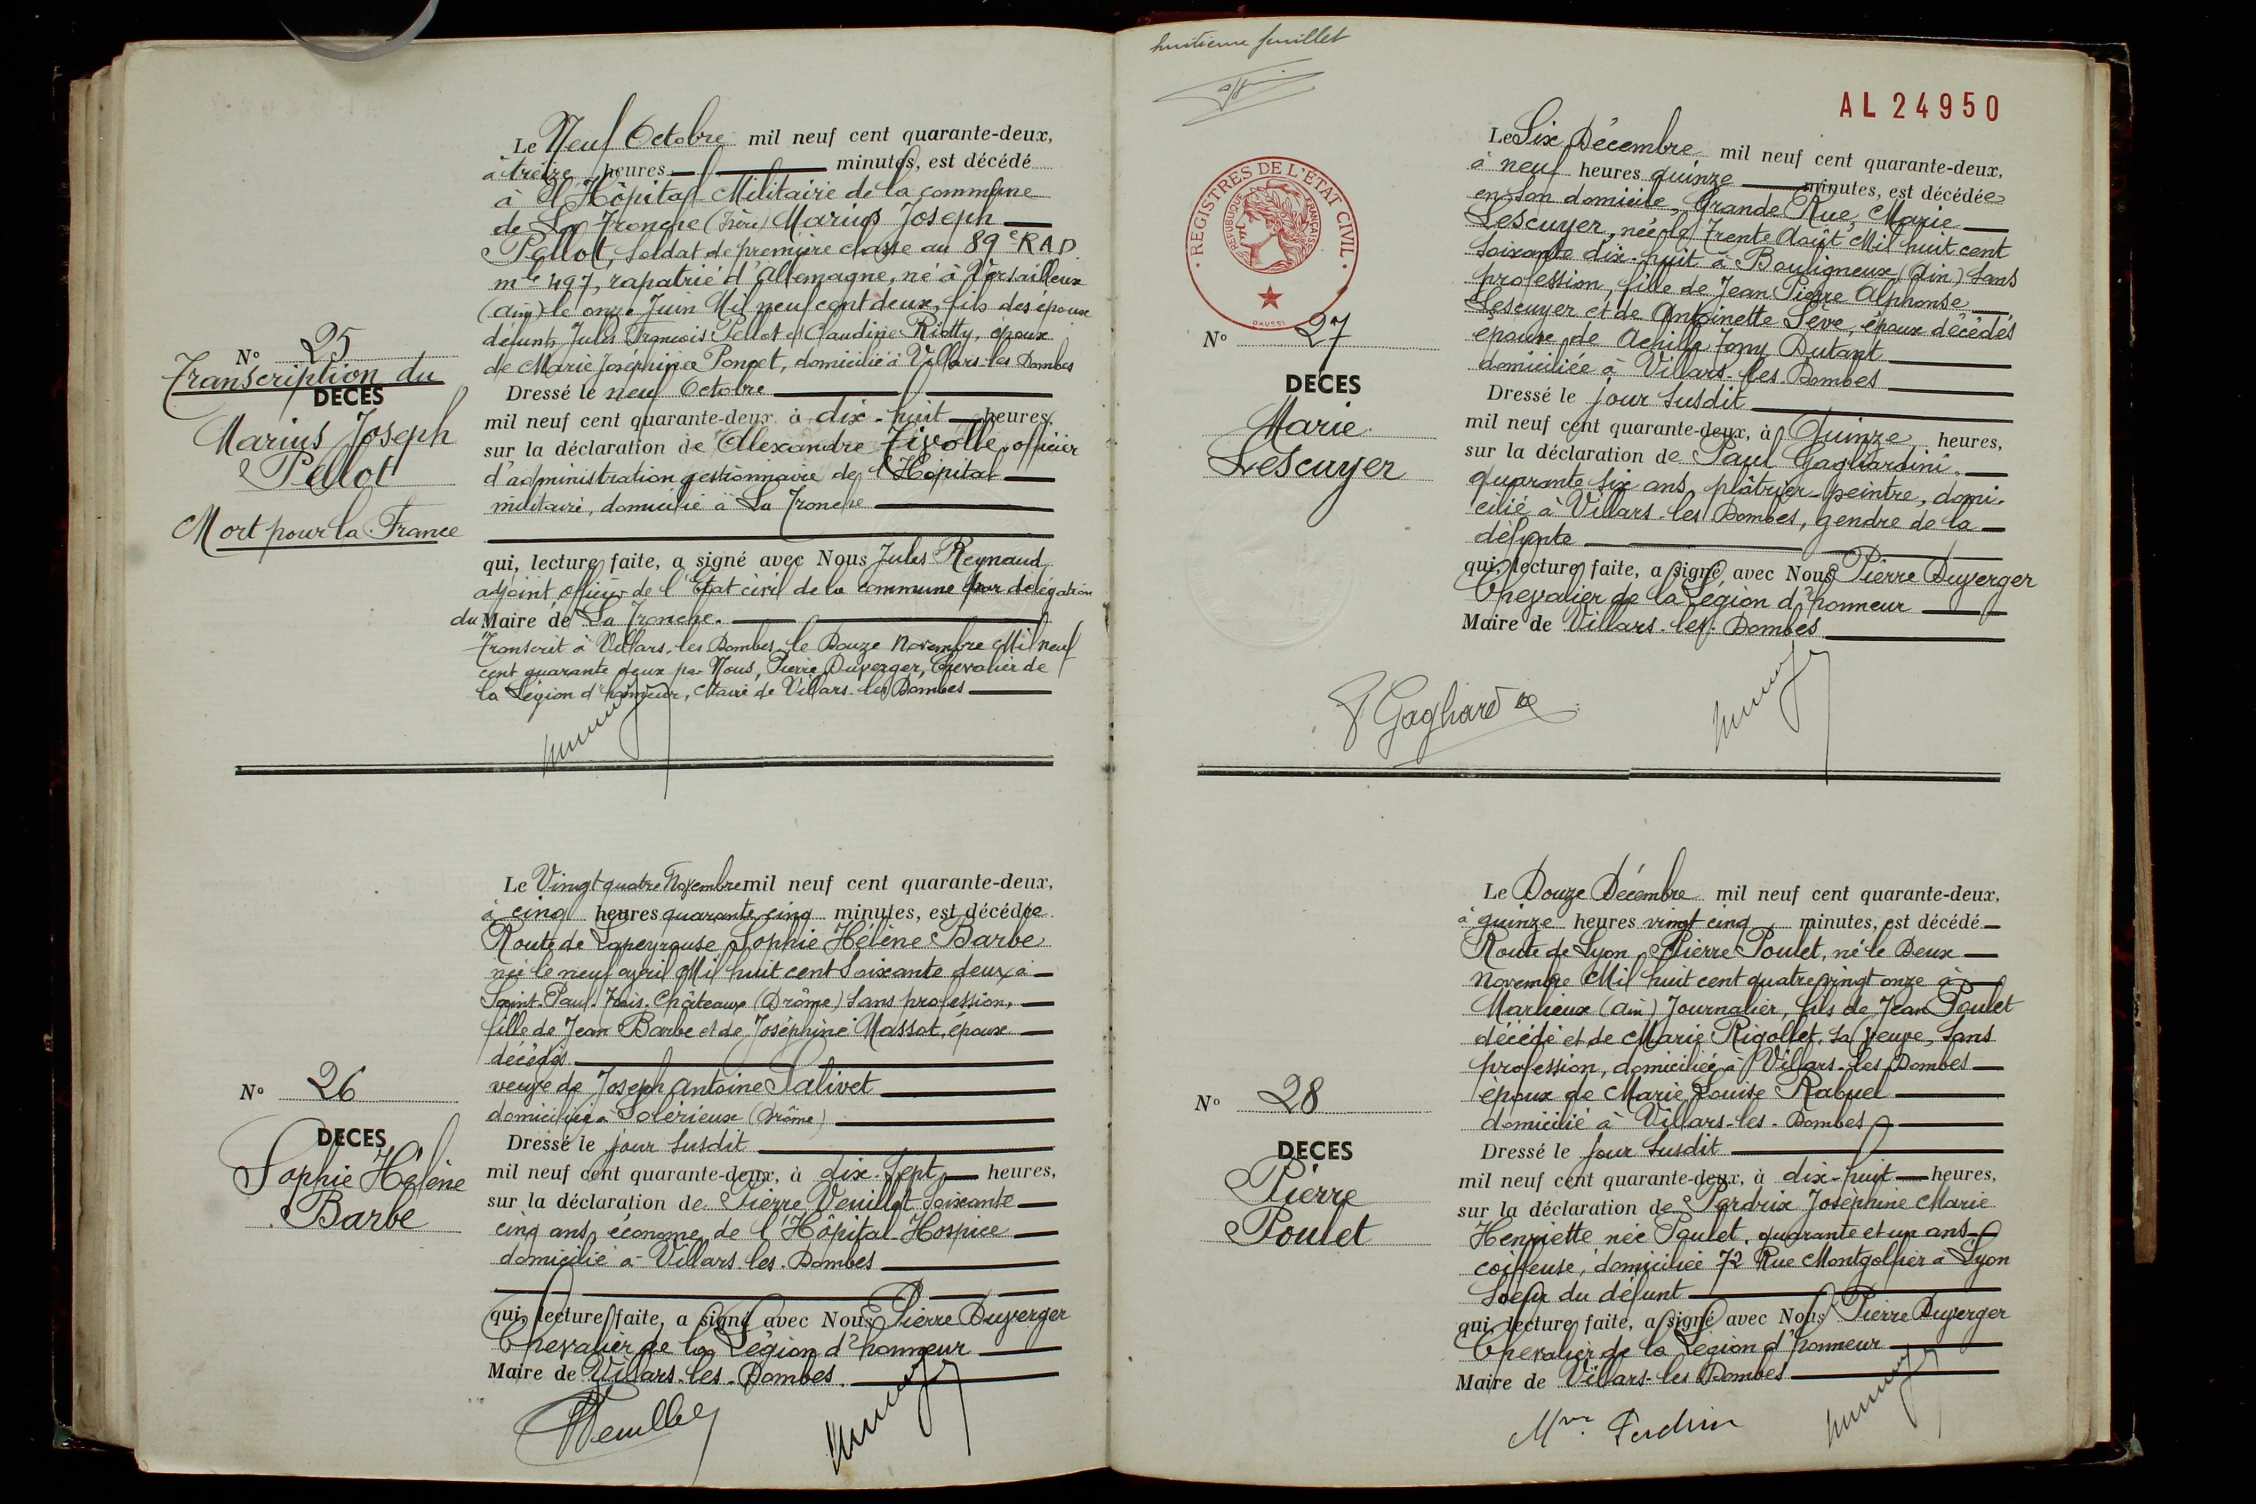 Le Neuf Octobre mil neuf cent quarante-deux,
à treize heures minutes, est décédé
à l'Hôpital Militaire de la commune
de La Tronche (Isère) Marius Joseph
Pellot, soldat de première classe au 89e R.A.D.
mle 497, rapatrié d'Allemagne, né à Versailleux
(Ain) le onze Juin Mil neuf cent deux, fils des époux
défunts Jules François Pellot et Claudine Riotty, époux
de Marie Joséphine Poncet, domicilié à Villars-les Dombes
Dressé le neuf Octobre
mil neuf cent quarante-deux à dix-huit heures,
sur la déclaration de Alexandre Tivolle, officier
d'administration gestionnaire de l'Hôpital
militaire, domicilié à La Tronche
qui, lecture faite, a signé avec Nous Jules Reynaud
adjoint officier de l'Etat civil de la commune par délégation
du Maire de La Tronche.
Transcrit à Villars-les Dombes le Douze Novembre Mil neuf
cent quarante deux par Nous, Pierre Duverger, Chevalier de
la Légion d'honneur, Maire de Villars-les Dombes
N° 25
Transcription du
DECES
Marius Joseph
Pellot
Mort pour la France
Le Vingt quatre Novembre mil neuf cent quarante-deux,
à cinq heures quarante cinq minutes, est décédée
Route de Lapeyrouse Sophie Hélène Barbe
née le neuf avril Mil huit cent soixante deux à
Saint-Paul-Trois-Châteaux (Drôme) sans profession,
fille de Jean Barbe et de Joséphine Massot, époux
décédés
veuve de Joseph Antoine Palivet
domiciliée à Solérieux (Drôme)
Dressé le jour susdit
mil neuf cent quarante-deux, à dix-sept heures,
sur la déclaration de Pierre Veuillet soixante
cinq ans, économe de l'Hôpital-Hospice
domicilié à Villars-les-Dombes
qui, lecture faite, a signé avec Nous Pierre Duverger
Chevalier de la Légion d'honneur
Maire de Villars-les-Dombes.
Veuillet
N° 26
DECES
Sophie Hélène
Barbe
huitième feuillet
AL 24950
REGISTRES DE L'ÉTAT CIVIL
REPUBLIQUE FRANÇAISE
DAUSSI
Le Six Décembre mil neuf cent quarante-deux,
à neuf heures quinze minutes, est décédée
en son domicile, Grande Rue, Marie
Lescuyer, née le Trente Août Mil huit cent
soixante dix-huit à Bouligneux (Ain) sans
profession, fille de Jean Pierre Alphonse
Lescuyer et de Antoinette Sève, époux décédés
épouse de Achille Tony Dutant
domiciliée à Villars-les-Dombes
Dressé le jour susdit
mil neuf cent quarante-deux, à Quinze heures,
sur la déclaration de Paul Gagliardini,
quarante six ans, plâtrier-peintre, domi-
cilié à Villars-les Dombes, gendre de la
défunte
qui, lecture faite, a signé avec Nous Pierre Duverger
Chevalier de la Légion d'honneur
Maire de Villars-les-Dombes
N° 27
DECES
Marie
Lescuyer
Le Douze Décembre mil neuf cent quarante-deux,
à quinze heures vingt cinq minutes, est décédé
Route de Lyon, Pierre Poulet, né le Deux
Novembre Mil huit cent quatre vingt onze à
Marlieux (Ain) Journalier, fils de Jean Poulet
décédé et de Marie Rigollet, sa veuve, sans
profession, domiciliée à Villars-les Dombes
époux de Marie Louise Rabuel
domicilié à Villars-les-Dombes
Dressé le jour susdit
mil neuf cent quarante-deux, à dix-huit heures,
sur la déclaration de Perdrix Joséphine Marie
Henriette née Poulet, quarante et un ans
coiffeuse, domiciliée 72 Rue Montgolfier à Lyon
Soeur du défunt
qui, lecture faite, a signé avec Nous Pierre Duverger
Chevalier de la Légion d'honneur
Maire de Villars-les Dombes
Mme Perdrix
N° 28
DECES
Pierre
Poulet